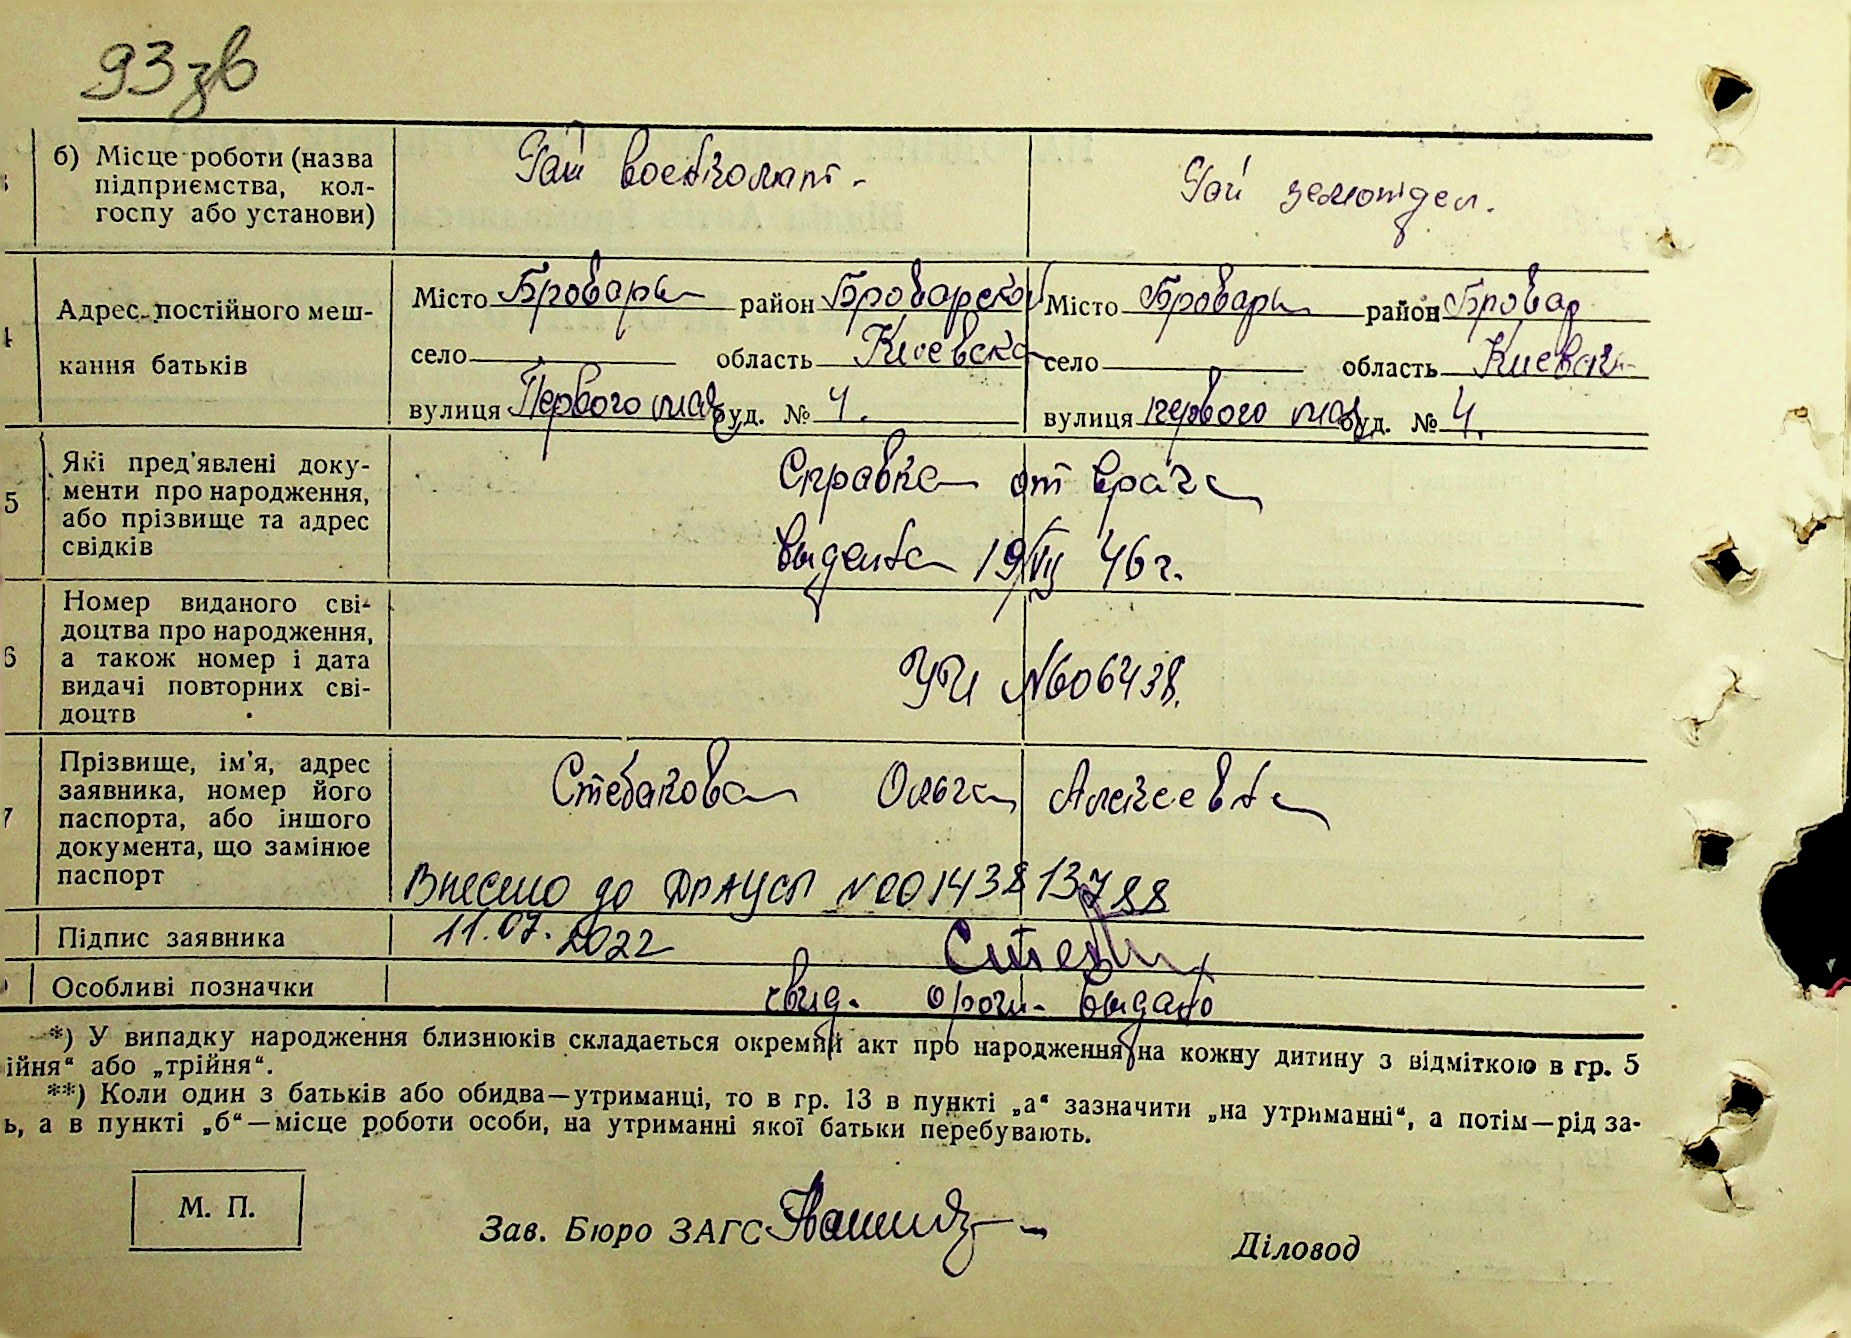 93 зв
б) Місце роботи (назва
підприємства, кол-
госпу або установи)
Рай военкомат -
Рай земотдел.
4
Адрес постійного меш-
кання батьків
Місто Бровары район Броварской
село область Киевская
вулиця Первого мая буд. № 4.
Місто Бровары район Бровар
село область Киевская
вулиця первого мая буд. № 4.
5
Які пред'явлені доку-
менти про народження,
або прізвище та адрес
свідків
Справка от врача
выдана 19/VII 46 г.
6
Номер виданого сві-
доцтва про народження,
а також номер і дата
видачі повторних сві-
доцтв
№ 606438.
7
Прізвище, ім'я, адрес
заявника, номер його
паспорта, або іншого
документа, що замінює
паспорт
Стебакова Ольга Алексеевна
Внесено до ДРАЦСГ № 00143813788
11.07.2022
Підпис заявника
Особливі позначки
свид. о рожд. выдано
*) У випадку народження близнюків складається окремий акт про народження на кожну дитину з відміткою в гр. 5
ійня“ або „трійня“.
**) Коли один з батьків або обидва—утриманці, то в гр. 13 в пункті „а“ зазначити „на утриманні“, а потім—рід за-
ь, а в пункті „б“—місце роботи особи, на утриманні якої батьки перебувають.
М. П.
Зав. Бюро ЗАГС
Діловод